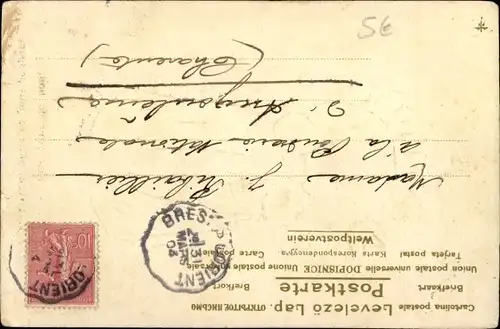 5€
Cartolina postale Levelező Lap. ОТКРЫТОЕ ПИСЬМО
Briefkaart Postkarte Brefkort
Union postale universelle DOPISNICE Unione postale universale
Tarjeta postal Karta Korespondencyjna Carte postale
Weltpostverein
Madame J.
à la Poudrerie Nationale
D'Angoulême
(Charente)
BREST
LORIENT
MARS
03
10
LORIENT